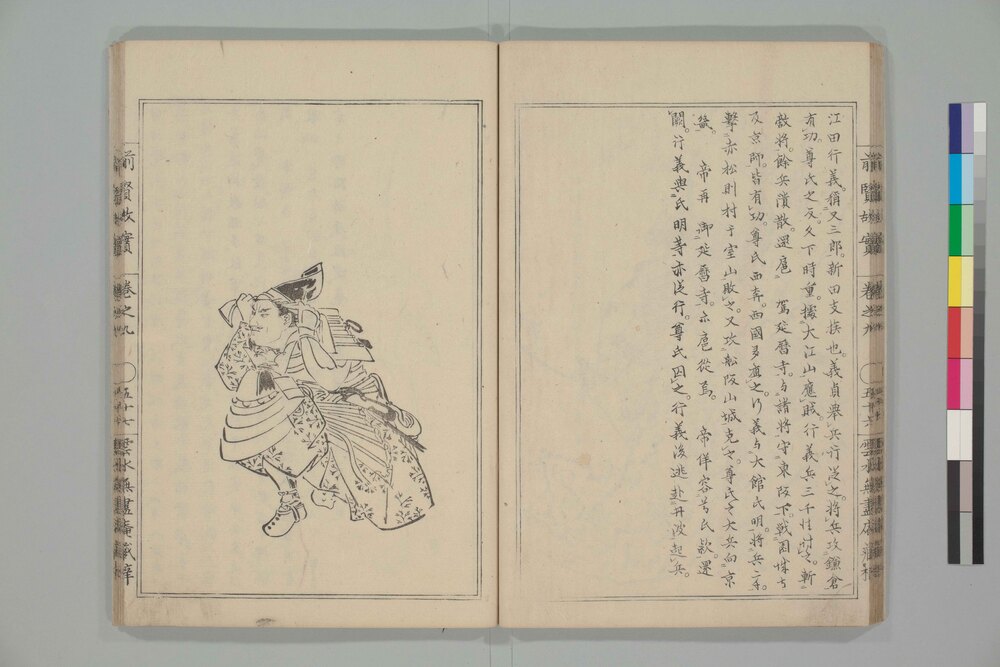 江田行義。稱又三郎。新田支族也。義貞舉兵。行義從之。將兵攻鎌倉
有功。尊氏之反。久下時重。據大江山應賊。行義兵三千往討之。斬
數將。餘兵潰散。還扈 駕延曆寺。与諸將守東阪下戰。因
及京師。皆有功。尊氏西奔。西國多應之。行義与大館氏明。將兵二千。
擊赤松則村于室山敗之。又攻船阪山城克之。尊氏之大兵向京
帝再 御延曆寺。亦扈從焉。 帝佯容尊氏款。還
闕。行義與氏明等亦從行。尊氏囚之。行義後逃赴丹波起兵。
前賢故實
卷之九
五十六
前賢故實
卷之九
五十七
雲水無盡庵藏梓